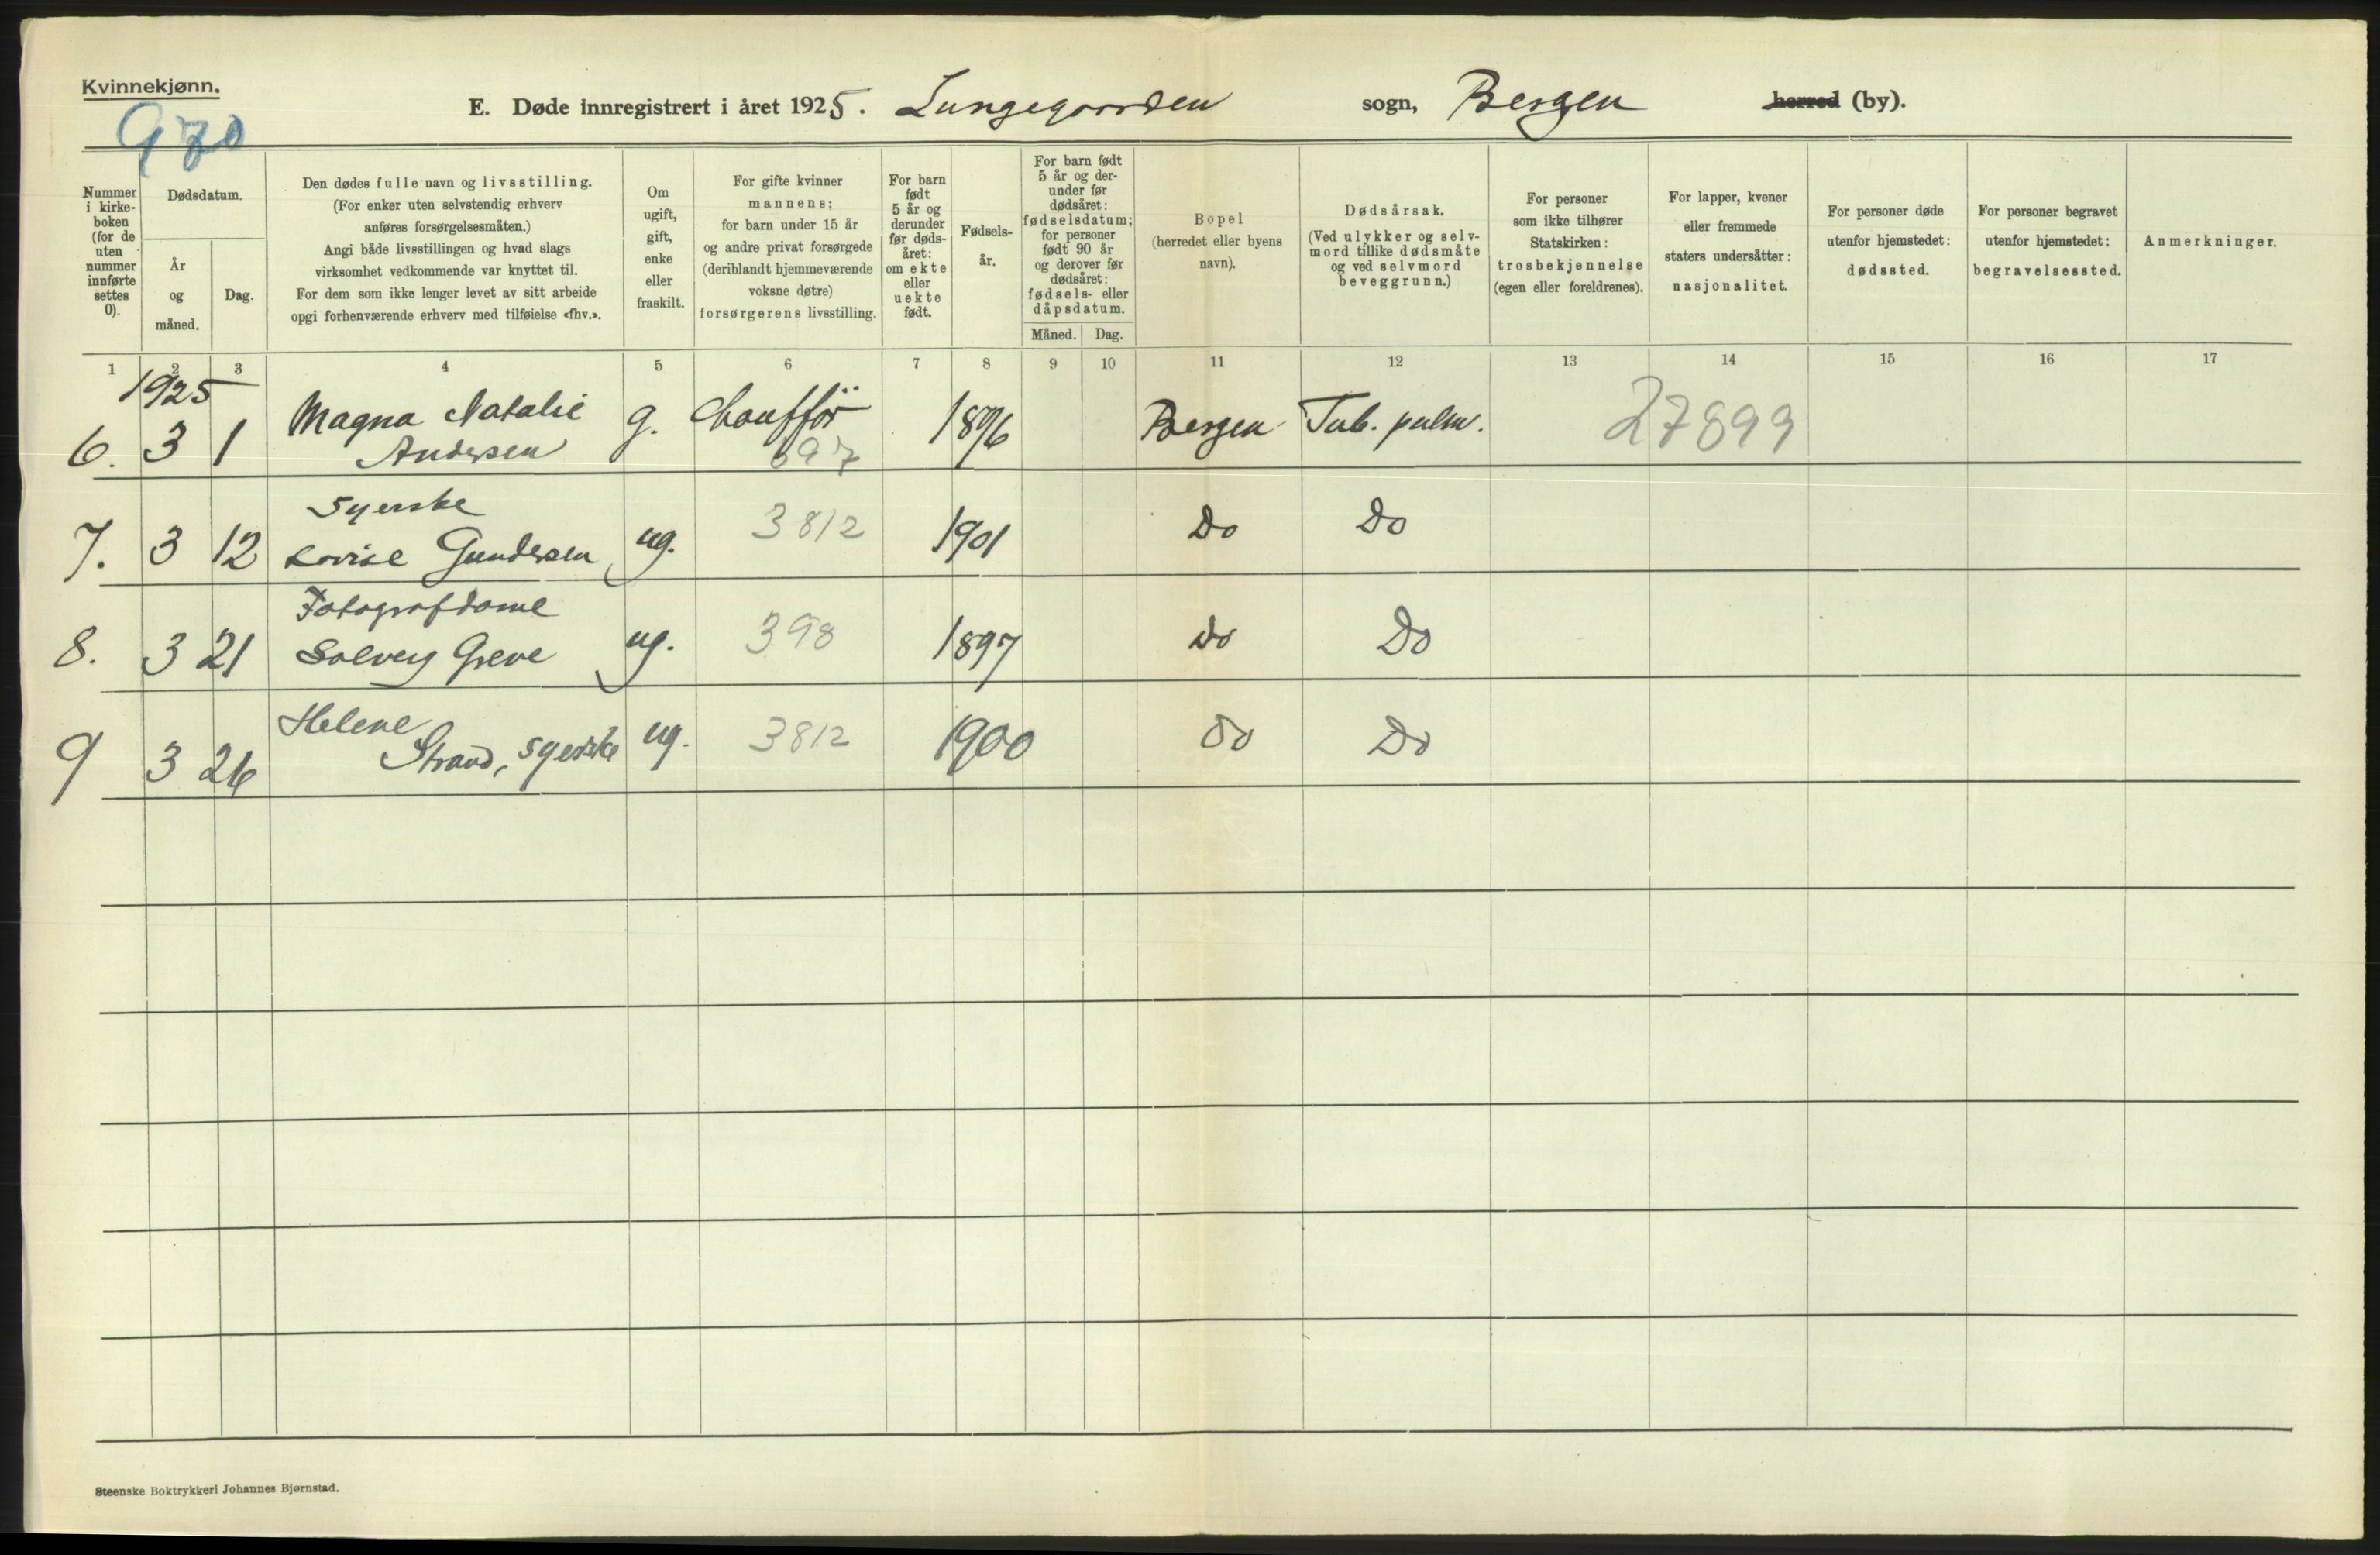 Kvinnekjønn.
970
E. Døde innregistrert i året 1925. Lungegaarden sogn, Bergen herred (by).
Nummer
i kirke-
boken
(for de
uten
nummer
innførte
settes
0).
Dødsdatum.
År
og
måned.
Dag.
Den dødes fulle navn og livsstilling.
(For enker uten selvstendig erhverv
anføres forsørgelsesmåten.)
Angi både livsstillingen og hvad slags
virksomhet vedkommende var knyttet til.
For dem som ikke lenger levet av sitt arbeide
opgi forhenværende erhverv med tilføielse «fhv.».
Om
ugift,
gift,
enke
eller
fraskilt.
For gifte kvinner
mannens;
for barn under 15 år
og andre privat forsørgede
(deriblandt hjemmeværende
voksne døtre)
forsørgerens livsstilling.
For barn
født
5 år og
derunder
før døds-
året:
om ekte
eller
uekte
født.
Fødsels-
år.
For barn født
5 år og der-
under før
dødsåret:
fødselsdatum;
for personer
født 90 år
og derover før
dødsåret:
fødsels- eller
dåpsdatum.
Måned. Dag.
Bopel
(herredet eller byens
navn).
Dødsårsak.
(Ved ulykker og selv-
mord tillike dødsmåte
og ved selvmord
beveggrunn.)
For personer
som ikke tilhører
Statskirken:
trosbekjennelse
(egen eller foreldrenes).
For lapper, kvener
eller fremmede
staters undersåtter:
nasjonalitet.
For personer døde
utenfor hjemstedet:
dødssted.
For personer begravet
utenfor hjemstedet:
begravelsessted.
Anmerkninger.
1 2 3 4 5 6 7 8 9 10 11 12 13 14 15 16 17
1925
6. 3 1 Magna Natalie g. Chaufför 1896 Bergen Tub. pulm. 27899
Andersen 697
Syerske
7. 3 12 Lovise Gundersen, ug. 3812 1901 Do Do
Fotografdame
8. 3 21 Solveig Greve ug. 398 1897 Do Do
Helene
9 3 26 Strand, syerske ug. 3812 1900 Do Do
Steenske Boktrykkeri Johannes Bjørnstad.